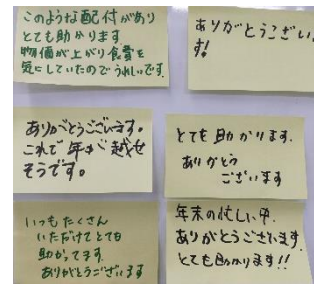 このような配付があり
とても助かります
物価が上がり食費を
気にしていたのでうれしいです.
ありがとうござい
す!
ありがとうございます。
これで年が越せ
そうです。
とても助かります.
ありがとう
ございます
いつもたくさん
いただけてとても
助かってます.
ありがとうございます
年末の忙しい中.
ありがとうございます.
とても助かります!!